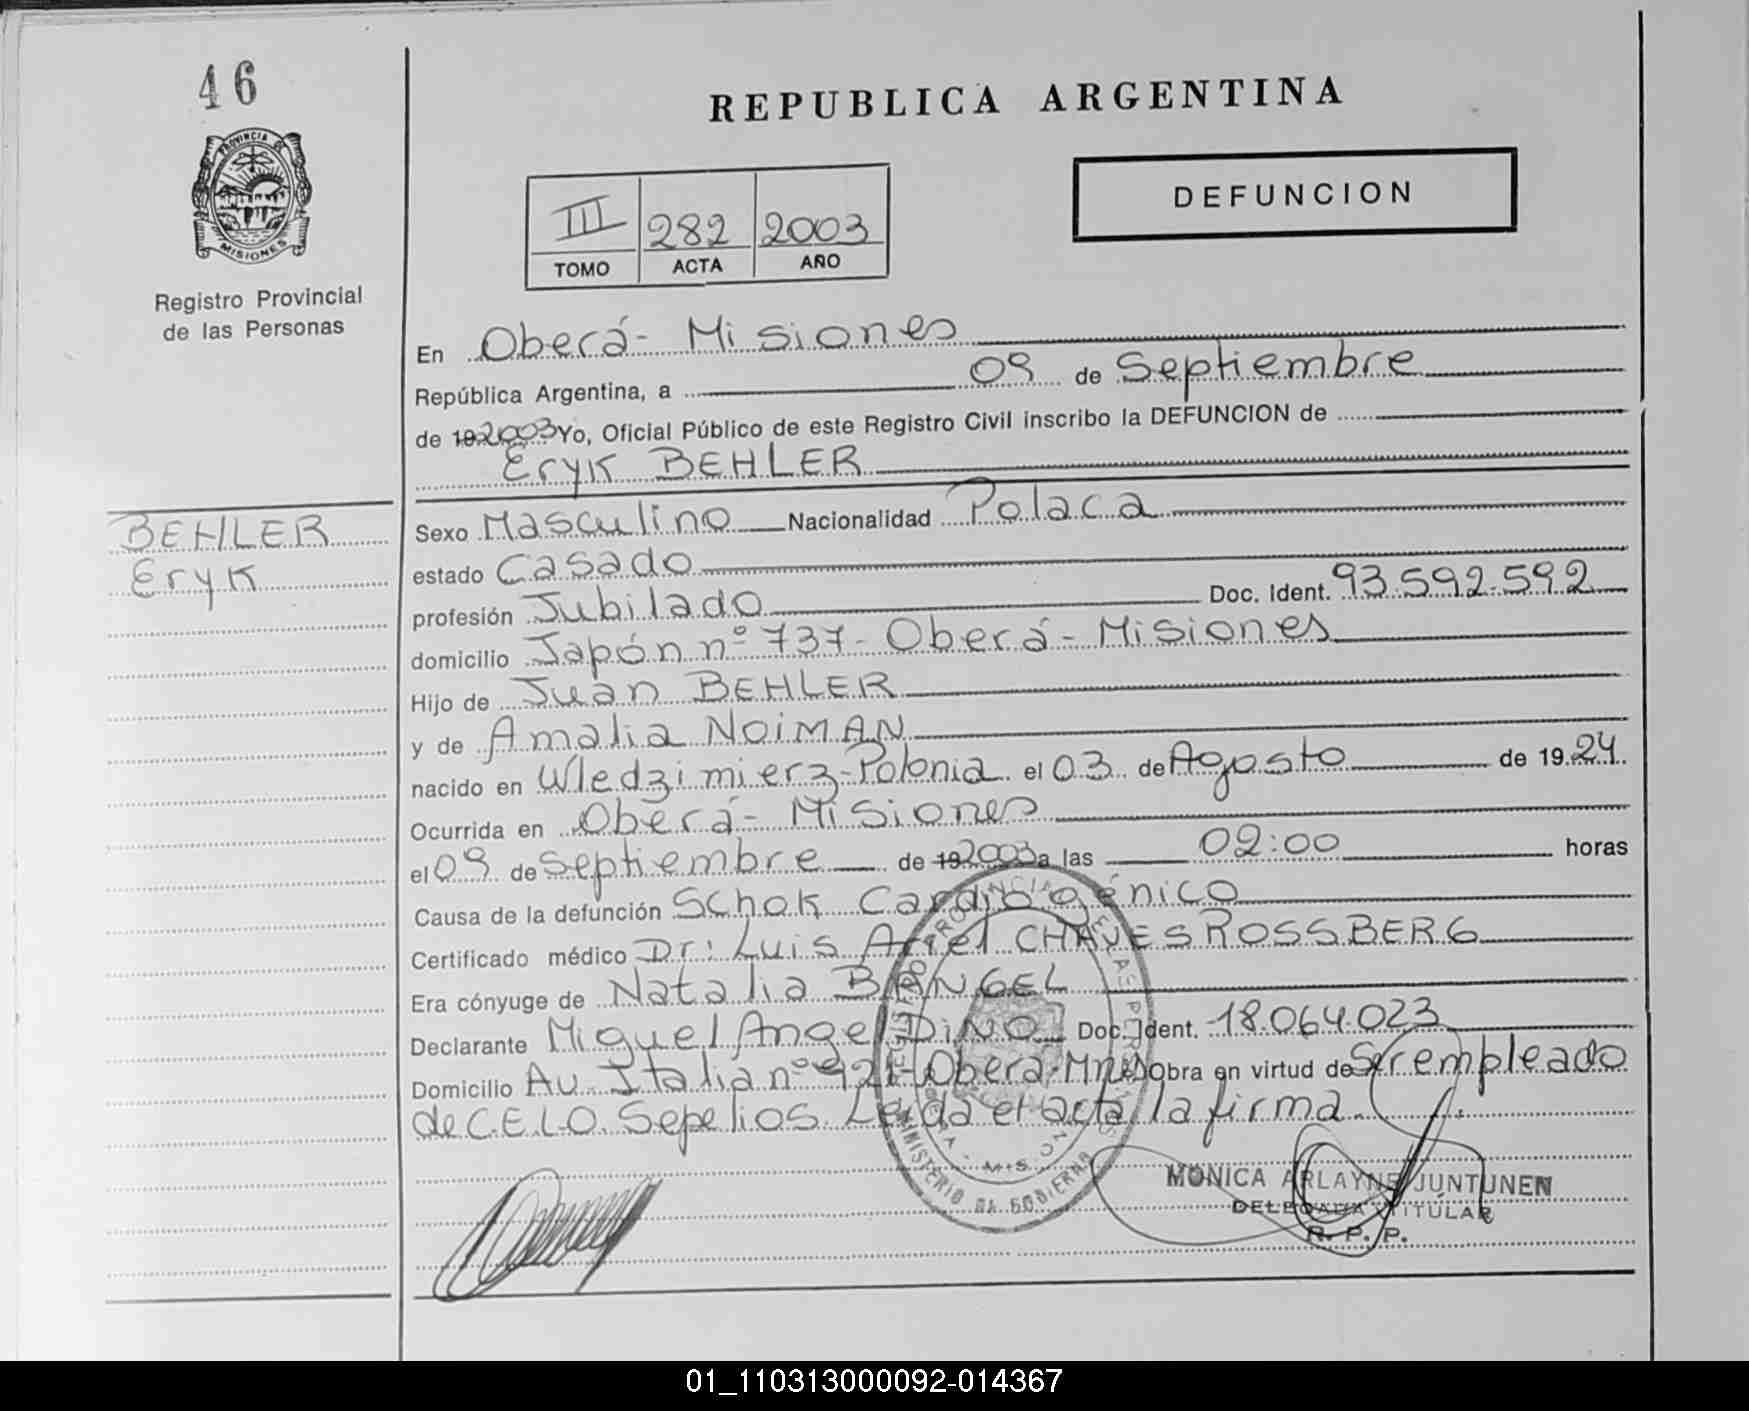 46
PROVINCIA DE
MISIONES
Registro Provincial
de las Personas
BEHLER
Eryk
REPUBLICA ARGENTINA
III 282 2003
TOMO ACTA AÑO
DEFUNCION
En Oberá - Misiones
República Argentina, a 09 de Septiembre
de 192003 Yo, Oficial Público de este Registro Civil inscribo la DEFUNCION de
Eryk BEHLER
Sexo Masculino Nacionalidad Polaca
estado Casado
profesión Jubilado Doc. Ident. 93.592.592
domicilio Japón nº 737 - Oberá - Misiones
Hijo de Juan BEHLER
y de Amalia NOiMAN
nacido en Wledzimierz - Polonia el 03 de Agosto de 1924
Ocurrida en Oberá - Misiones
el 09 de Septiembre de 192003 a las 02:00 horas
Causa de la defunción Schok Cardiogénico
Certificado médico Dr: Luis Ariel CHAVES ROSSBERG
Era cónyuge de Natalia BANGEL
Declarante Miguel Angel DiNO Doc. Ident. 18.064.023
Domicilio Av. Italia nº 921 - Oberá - Mnes obra en virtud de Ser empleado
de C.E.L.O. Sepelios. Leida el acta, la firma.
MINISTERIO DE GOBIERNO
MONICA ARLAYNE JUNTUNEN
DELEGADA TITULAR
R. P. P.
01_110313000092-014367